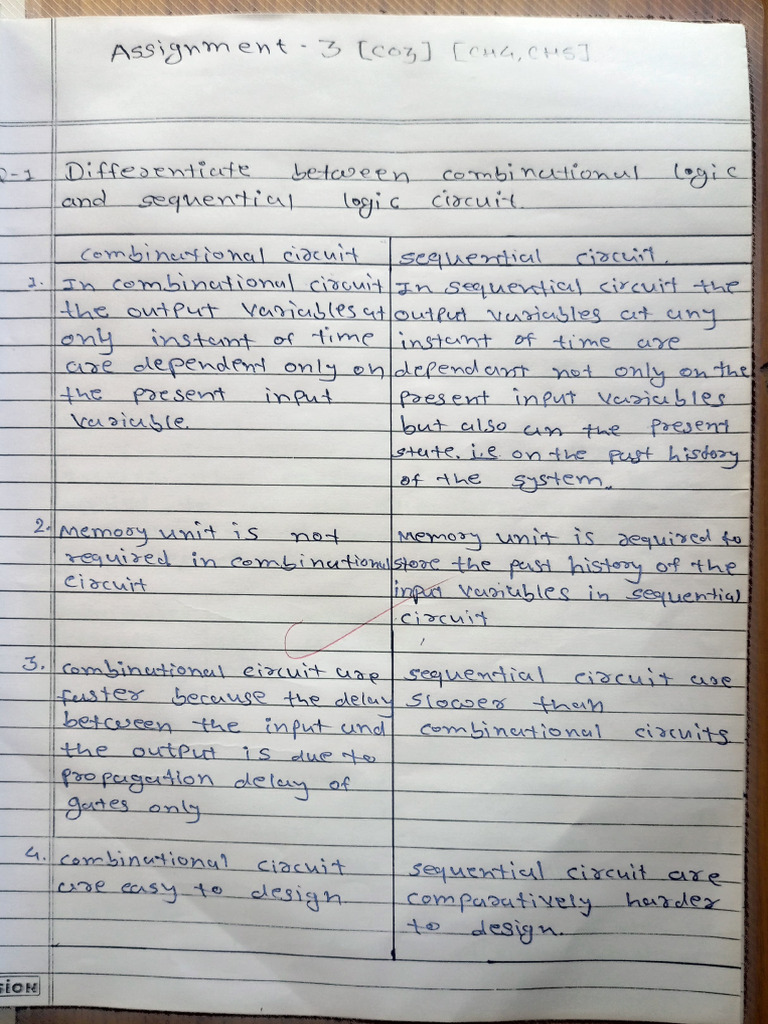 Assignment - 3 [CO3] [CH4, CH5]
Q-1 Differentiate between combinational logic
and sequential logic circuit.
combinational circuit
1. In combinational circuit
the output variables at
only instant of time
are dependent only on
the present input
variable.
2. Memory unit is not
required in combinational
circuit
3. combinational circuit are
faster because the delay
between the input and
the output is due to
propagation delay of
gates only
4. combinational circuit
are easy to design
sequential circuit.
In sequential circuit the
output variables at any
instant of time are
dependant not only on the
present input variables
but also an the present
state. i.e on the past history
of the system.
Memory unit is required to
store the past history of the
input variables in sequential
circuit
sequential circuit are
slower than
combinational circuits
sequential circuit are
comparatively harder
to design.
SION